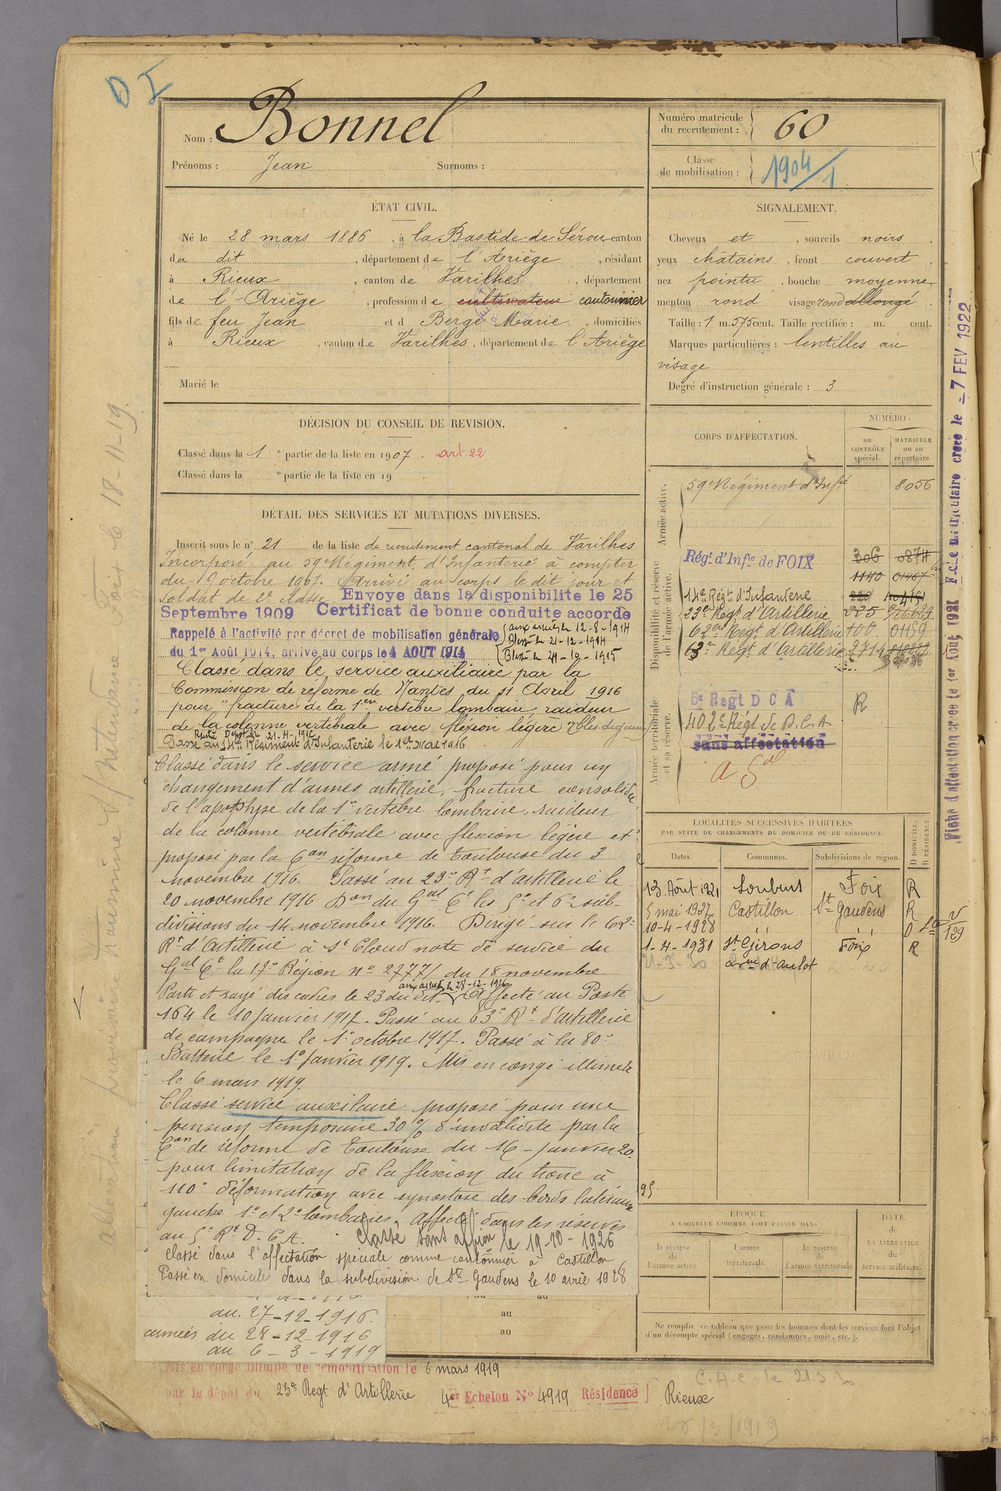 D I
Nom : Bonnel
Prénoms : Jean Surnoms :
Numéro matricule
du recrutement : 60
Classe
de mobilisation : 1904/1
ETAT CIVIL.
Né le 28 mars 1886, à la Bastide de Sérou canton
du dit, département de l'Ariège, résidant
à Rieux, canton de Varilhes, département
de l'Ariège, profession de cultivateur cantonnier
fils de feu Jean et d Berge Marie, domiciliés
à Rieux, canton de Varilhes, département de l'Ariège
Marié le
SIGNALEMENT.
Cheveux et, sourcils noirs,
yeux châtains, front couvert,
nez pointu, bouche moyenne
menton rond visage rond allongé
Taille : 1 m. 575 cent. Taille rectifiée : m. cent.
Marques particulières : lentilles au
visage
Degré d'instruction générale : 3
DÉCISION DU CONSEIL DE REVISION.
Classé dans la 1 e partie de la liste en 1907. art 22
Classé dans la e partie de la liste en 19
DÉTAIL DES SERVICES ET MUTATIONS DIVERSES.
Inscrit sous le n° 21 de la liste de recrutement cantonal de Varilhes
Incorporé au 59e Régiment d'Infanterie à compter
du 9 octobre 1907. Arrivé au corps le dit jour et
soldat de 2e classe. Envoye dans la disponibilite le 25
Septembre 1909 Certificat de bonne conduite accorde
Rappelé à l'activité par décret de mobilisation générale
du 1er Août 1914, arrivé au corps le 4 AOUT 1914
(aux armées le 12-8-1914
Blessé le 21-12-1914
(Blessé le 24-9-1915
Classé dans le service auxiliaire par la
Commission de réforme de Nantes du 11 Avril 1916
pour "fracture de la 1ere vertèbre lombaire, raideur
de la colonne vertébrale avec flexion légère
Passé au 14e Régiment d'Infanterie le 1er Mai 1916
Classé dans le service armé proposé pour un
changement d'armes artillerie, fracture consolidée
de l'apophyse de la 1e vertèbre lombaire, raideur
de la colonne vertébrale avec flexion légère et
proposé par la Con réforme de Toulouse du 3
novembre 1916. Passé au 23e Rt d'artillerie le
20 novembre 1916 Don du Gal Ct les 5e et 6e sub-
divisions du 14 novembre 1916. Dirigé sur le 62e
Rt d'Artillerie à St Cloud note de service du
Gal Ct la 17e Région no 2777/ du 18 novembre
Parti et rayé des cadres le 23 du dit aux armées le 28-12-1916 Affecté au Poste
164 le 10 janvier 1917. Passé au 63e Rt d'artillerie
de campagne le 1er octobre 1917. Passé à la 80e
Batterie le 1er janvier 1919. Mis en congé illimité
le 6 mars 1919.
Classé service auxiliaire proposé pour une
pension temporaire 30% d'invalidité par la
Con de réforme de Toulouse du 16 - janvier 20
pour limitation de la flexion du tronc à
110° déformation avec synostose des bords latéraux
gauche 1e et 2e lombaires. Affecté dans les réserves
au 5e Rt D.C.A. Classé sans affon le 19-10-1926
Classé dans l'affectation spéciale comme cantonnier à Castillon
Passé en domicile dans la subdivision de St Gaudens le 10 avril 1928
au 27-12-1916.
armées du 28-12-1916
au 6-3-1919
au
au
Mis en congé illimité de démobilisation le 6 mars 1919
par le dépot du 23e Regt d'Artillerie 4er Echelon No 4919 Résidence Rieux
CORPS D'AFFECTATION.
NUMÉRO :
AU CONTRÔLE SPÉCIAL.
MATRICULE OU AU RÉPERTOIRE.
Armée active.
59e Régiment d'Infrie 8056
Disponibilité et réserve de l'armée active.
Régt d'Infie de FOIX 306
1140
14e Régt d'Infanterie
23e Régt d'Artillerie
62e Régt d'Artillerie 100 01159
63e Régt d'Artillerie 2711
Armée territoriale et sa réserve.
5e Regt DCA R
402e Régt de D.C.A
sans affectation
LOCALITÉS SUCCESSIVES HABITÉES
PAR SUITE DE CHANGEMENTS DE DOMICILE OU DE RÉSIDENCE.
Dates. Communes. Subdivisions de région. D DOMICILE. R RÉSIDENCE.
13 Août 1921 Foix R
5 mai 1927 Castillon St Gaudens R
10-4-1928 " " D
1-4-1931 St Girons Foix R
21-3-30
ÉPOQUE
A LAQUELLE L'HOMME DOIT PASSER DANS
la réserve de l'armée active
l'armée territoriale.
la réserve de l'armée territoriale
DATE
de
LA LIBÉRATION
du
service militaire.
Ne remplir ce tableau que pour les hommes dont les services font l'objet
d'un décompte spécial (engagés, condamnés, omis, etc.).
C.A.C. le 21.3.30
18/3/1919
Fiche d'affectation créée le 1er Aout 1921 Fiche matriculaire créée le - 7 FEV 1922